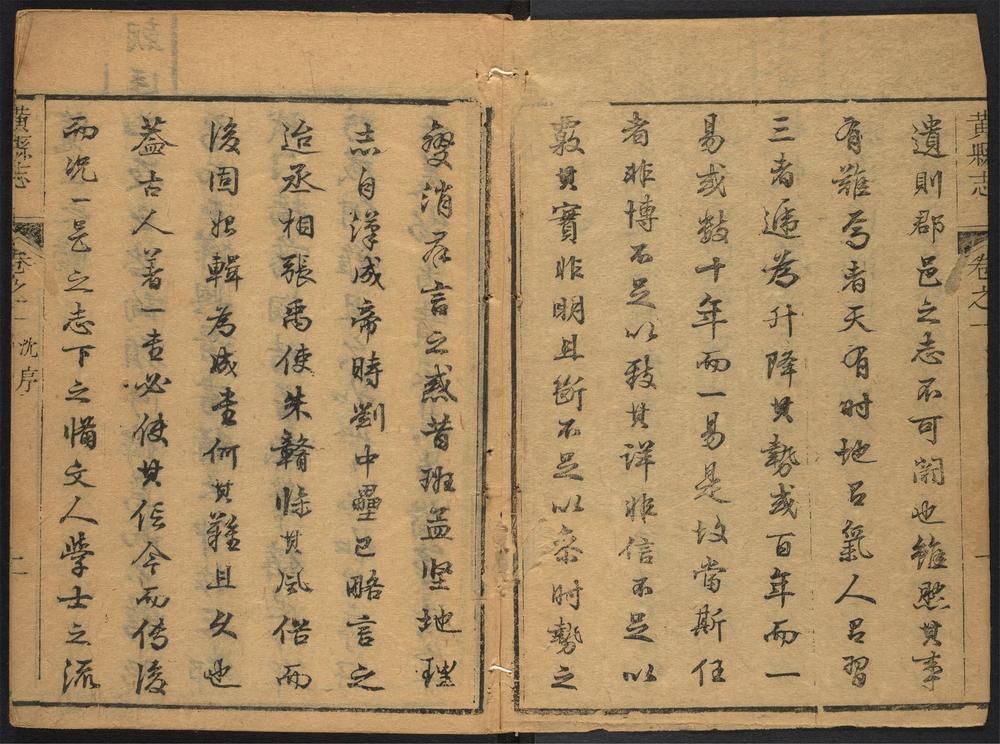 黃縣志
卷之一
一
遺則郡邑之志不可闕也雖然其事
有難焉者天有时地吕氣人吕習
三者遞為升降其勢或百年而一
易或數十年而一易是故當斯任
者非博不足以致其详非信不足以
覈其實非明且斷不足以条时勢之
變消羣言之惑昔班孟坚地理
志自漢成帝時劉中壘已略言之
迨丞相張禹使朱贛條其風俗而
後固始輯為成書何其難且久也
蓋古人著一書必使其信今而傳後
而况一邑之志下之備文人學士之流
黃縣志
卷之一
沈序
二